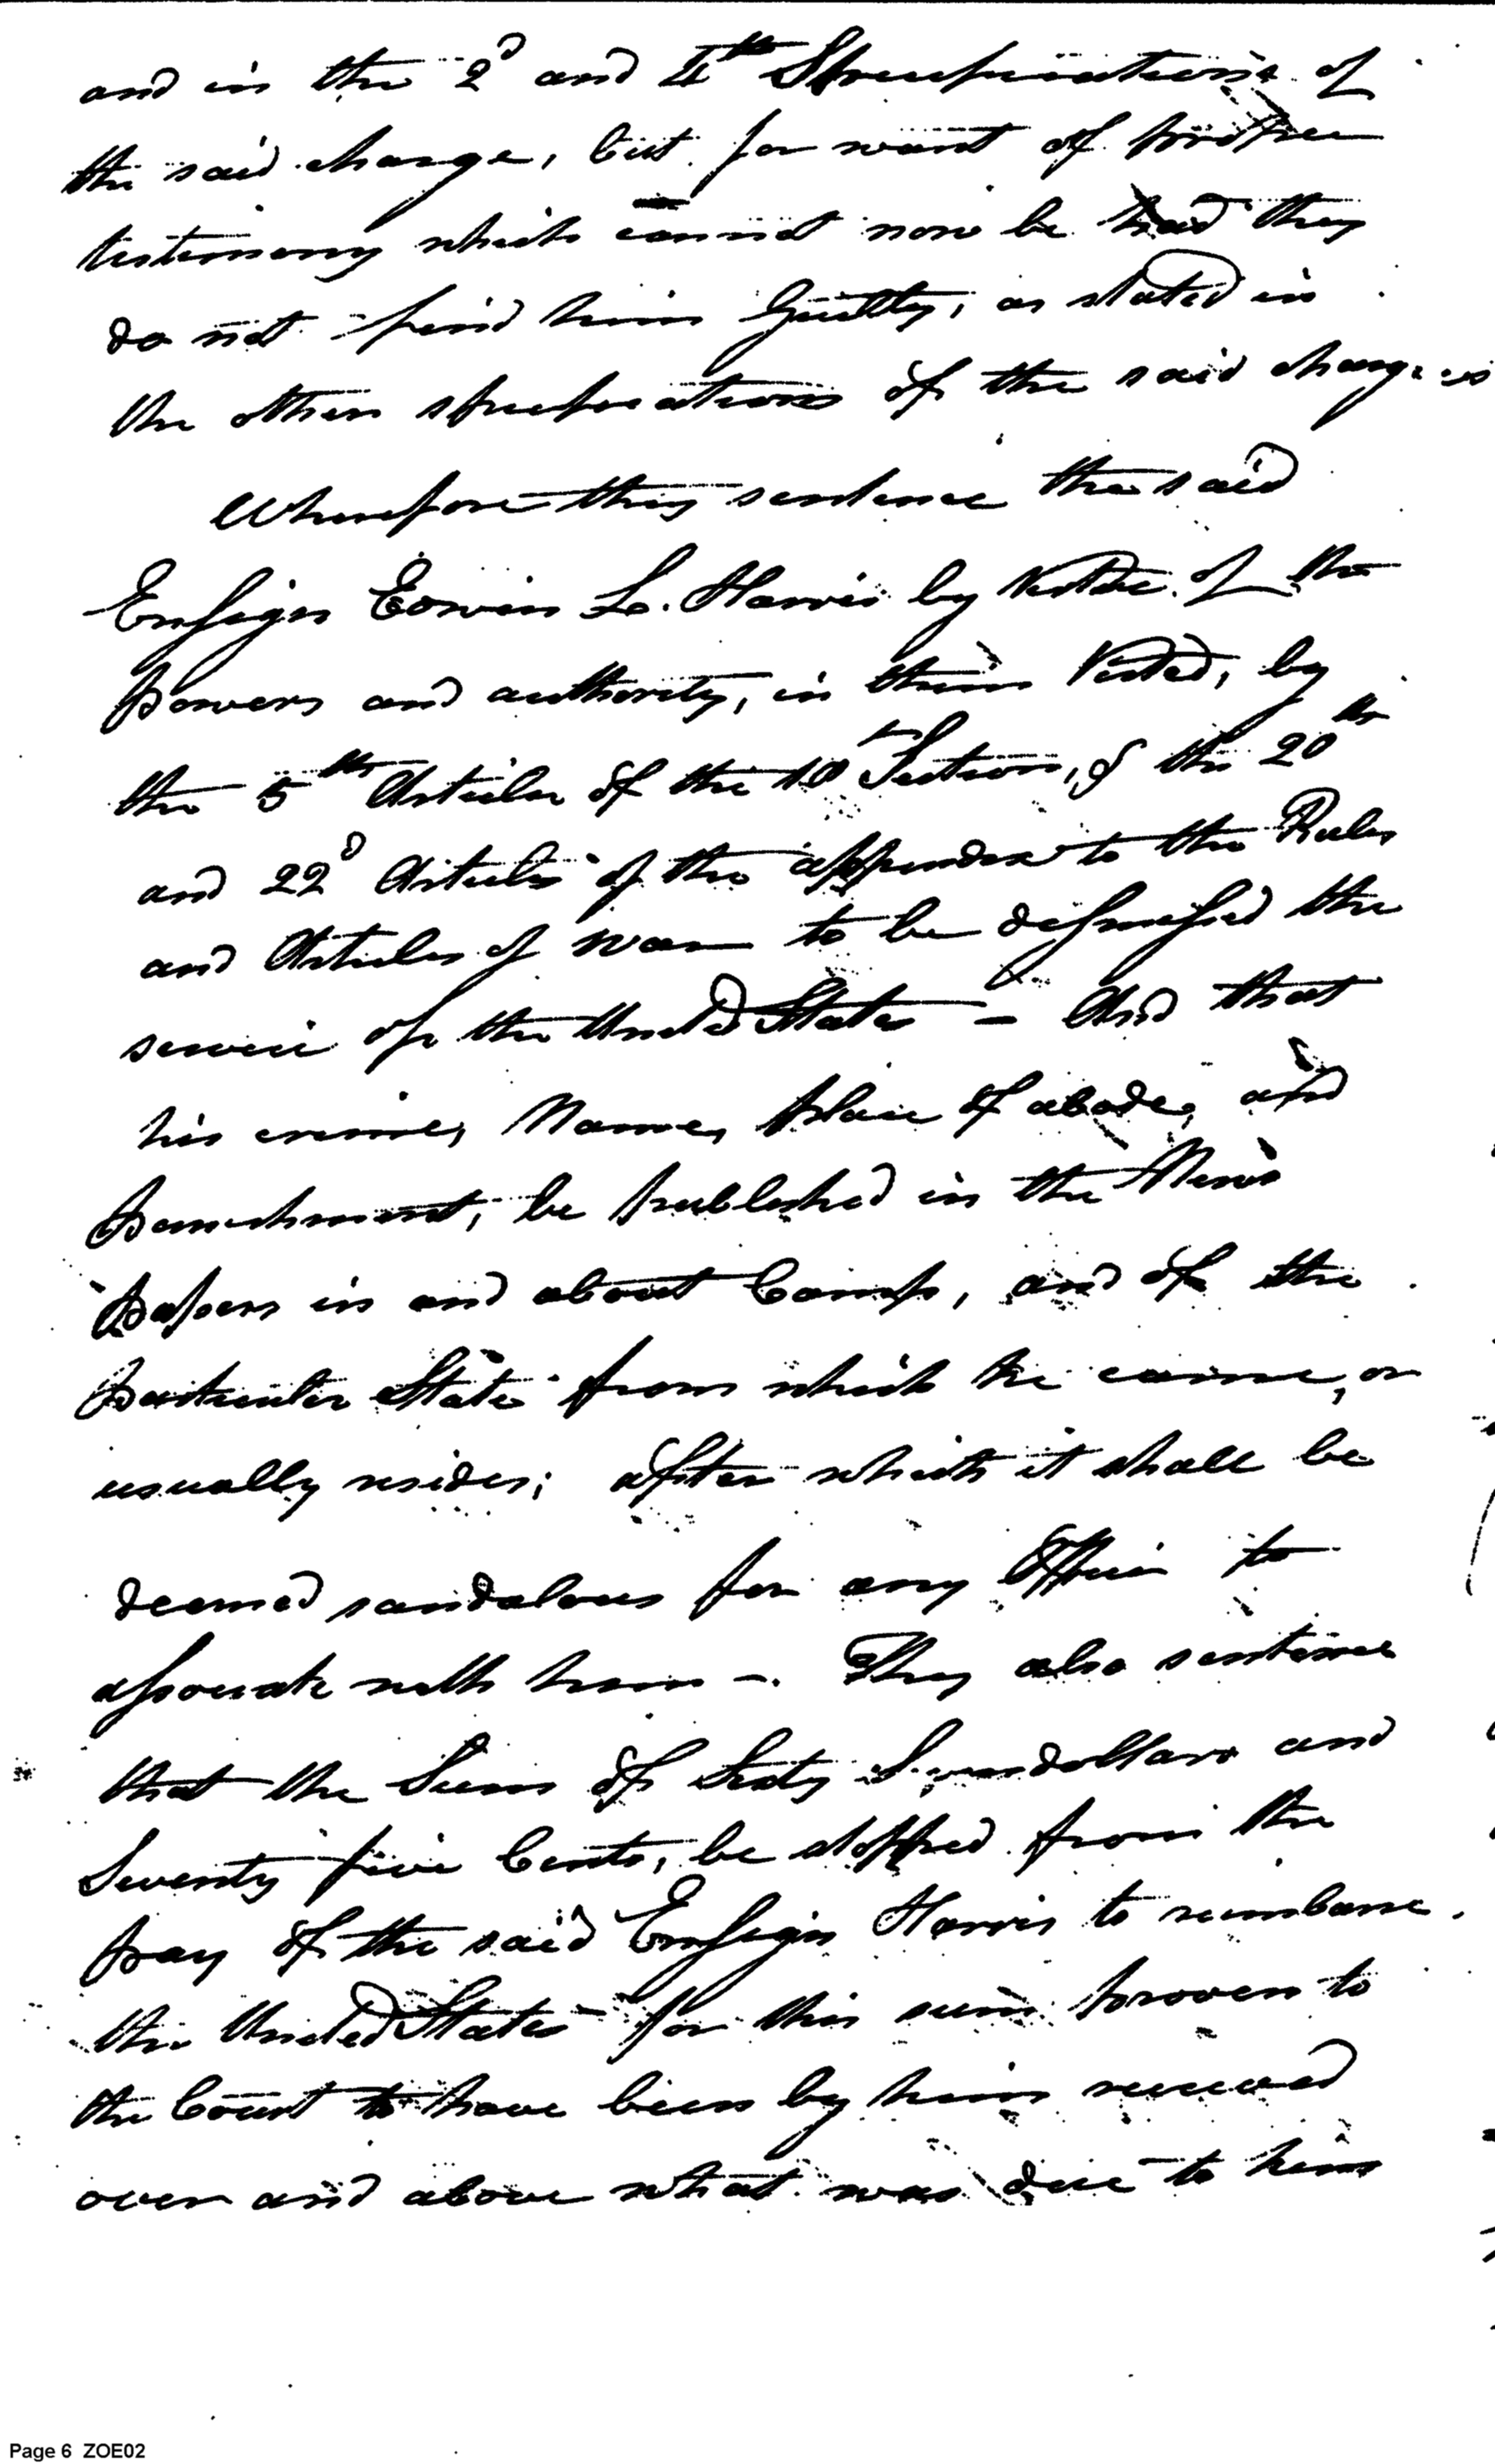 and in the 2d and 4th Specifications of
the said charge, but for want of further
testimony which cannot now be had they
do not find him Guilty, as stated in
the other specifications of the said charges
Wherefore they sentence the said
Ensign Edwin L. Harris by Virtue of the
powers and authority, in them Vested, by
the 5th Article of the Section, & the 20th
and 22d Articles of the appendix to the Rules
and Articles of War to be dismissed the
service of the United States – And that
his crime, Name, place of abode, and
punishment, be published in the News
papers in and about Camp, and of the
particular State from which he came, or
usually resides; after which it shall be
deemed scandalous for any Officer to
associate with him –. They also sentence
that the Sum of Sixty Seven dollars and
Seventy five Cents, be stopped from the
pay of the said Ensign Harris to reimburse
the United States for this sum proven to
the Court to have been by him received
over and above what was due to him
Page 6 ZOE02